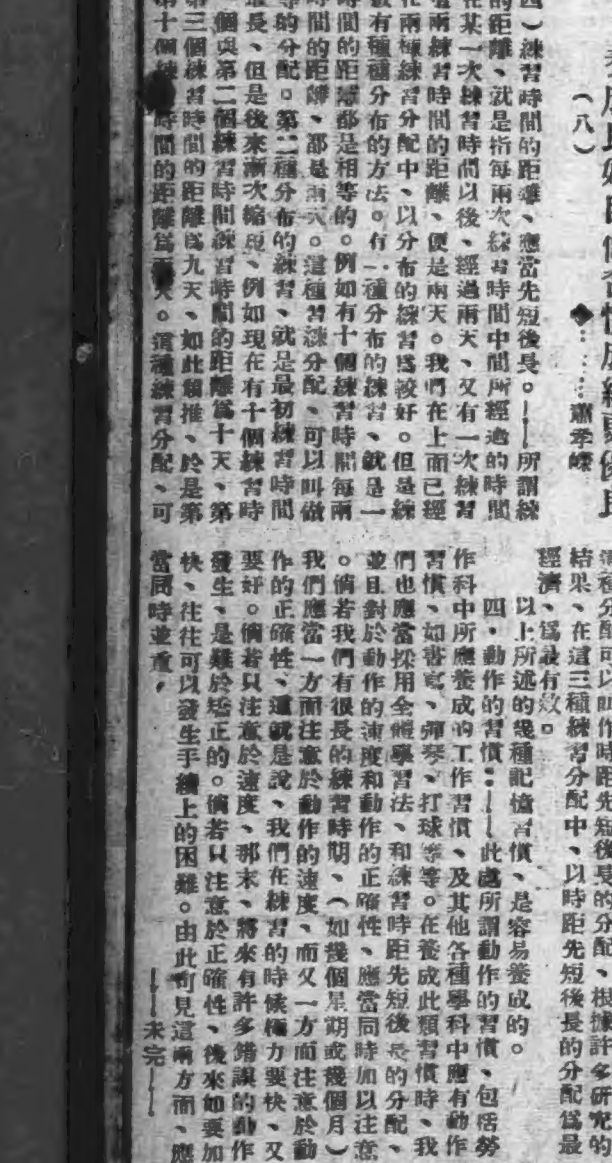 (八)
◆……蕭孝嶸
四)練習時間的距離、應當先短後長。——所謂練
的距離、就是指每兩次練習時間中間所經過的時間
在某一次練習時間以後、經過兩天、又有一次練習
兩練習時間的距離、便是兩天。我們在上面已經
在兩種練習分配中、以分布的練習爲較好。但是練
有種種分布的方法。有一種分布的練習、就是一
時間的距離都是相等的。例如有十個練習時間每兩
時間的距離、都是兩天。這種習練分配、可以叫做
等的分配。第二種分布的練習、就是最初練習時間
長、但是後來漸次縮短、例如現在有十個練習時
個與第二個練習時間練習時間的距離爲十天、第
第三個練習時間的距離爲九天、如此類推、於是第
第十個練習時間的距離爲兩天。這種練習分配、可
種分配可以叫作時距先短後長的分配、根據許多研究的
結果、在這三種練習分配中、以時距先短後長的分配爲最
經濟、爲最有效。
以上所述的幾種記憶習慣、是容易養成的。
四・動作的習慣:——此處所謂動作的習慣、包括勞
作科中所應養成的工作習慣、及其他各種學科中應有動作
習慣、如書寫、彈琴、打球等等。在養成此類習慣時、我
們也應當採用全體學習法、和練習時距先短後長的分配、
並且對於動作的速度和動作的正確性、應當同時加以注意
。倘若我們有很長的練習時期、(如幾個星期或幾個月)
我們應當一方面注意於動作的速度、而又一方面注意於動
作的正確性、這就是說、我們在練習的時候極力要快、又
要好。倘若只注意於速度、那末、將來有許多錯誤的動作
發生、是難於矯正的。倘若只注意於正確性、後來如要加
快、往往可以發生手續上的困難。由此可見這兩方面、應
當同時並重，
——未完——